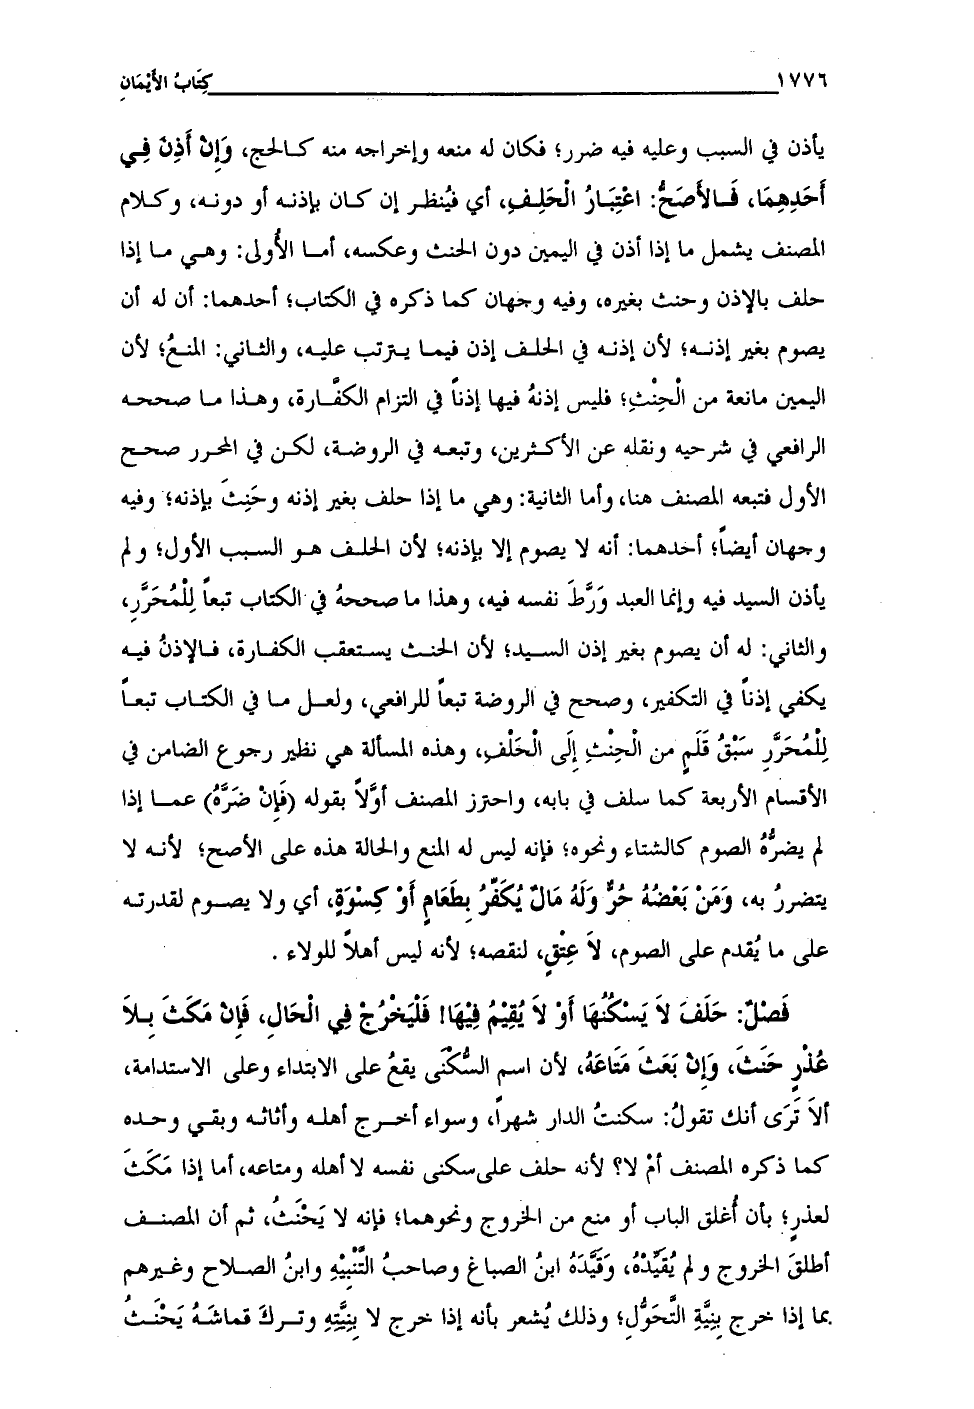 ١٧٧٦ كِتَابُ الأَيْمَانِ
يأذن في السبب وعليه فيه ضرر؛ فكان له منعه وإخراجه منه كالحج، وَإِنْ أَذِنَ فِي
أَحَدِهِمَا، فَالأَصَحُّ: اعْتِبَارُ الْحَلِفِ، أي فيُنظر إن كان بإذنه أو دونه، وكلام
المصنف يشمل ما إذا أذن في اليمين دون الحنث وعكسه، أما الأُولى: وهي ما إذا
حلف بالإذن وحنث بغيره، وفيه وجهان كما ذكره في الكتاب؛ أحدهما: أن له أن
يصوم بغير إذنه؛ لأن إذنه في الحلف إذن فيما يترتب عليه، والثاني: المنعُ؛ لأن
اليمين مانعة من الْحِنْثِ؛ فليس إذنهُ فيها إذناً في التزام الكفَّارة، وهذا ما صححه
الرافعي في شرحيه ونقله عن الأكثرين، وتبعه في الروضة، لكن في المحرر صحح
الأول فتبعه المصنف هنا، وأما الثانية: وهي ما إذا حلف بغير إذنه وحَنِثَ بإذنه؛ وفيه
وجهان أيضاً؛ أحدهما: أنه لا يصوم إلا بإذنه؛ لأن الحلف هو السبب الأول؛ ولم
يأذن السيد فيه وإنما العبد وَرَّطَ نفسه فيه، وهذا ما صححهُ في الكتاب تبعاً لِلْمُحَرَّرِ،
والثاني: له أن يصوم بغير إذن السيد؛ لأن الحنث يستعقب الكفارة، فالإذنُ فيه
يكفي إذناً في التكفير، وصحح في الروضة تبعاً للرافعي، ولعل ما في الكتاب تبعاً
لِلْمُحَرَّرِ سَبْقُ قَلَمٍ من الْحِنْثِ إِلَى الْحَلْفِ، وهذه المسألة هي نظير رجوع الضامن في
الأقسام الأربعة كما سلف في بابه، واحترز المصنف أوَّلاً بقوله (فَإِنْ ضَرَّهُ) عما إذا
لم يضرُّهُ الصوم كالشتاء ونحوه؛ فإنه ليس له المنع والحالة هذه على الأصح؛ لأنه لا
يتضررُ به، وَمَنْ بَعْضُهُ حُرٌّ وَلَهُ مَالٌ يُكَفِّرُ بِطَعَامٍ أَوْ كِسْوَةٍ، أي ولا يصوم لقدرته
على ما يُقدم على الصوم، لاَ عِتْقٍ، لنقصه؛ لأنه ليس أهلاً للولاء .
فَصْلٌ: حَلَفَ لاَ يَسْكُنُهَا أَوْ لاَ يُقِيْمُ فِيْهَا! فَلْيَخْرُجْ فِي الْحَالِ، فَإِنْ مَكَثَ بِلاَ
عُذْرٍ حَنَثَ، وَإِنْ بَعَثَ مَتَاعَهُ، لأن اسم السُّكْنَى يقعُ على الابتداء وعلى الاستدامة،
ألاَ تَرَى أنك تقولُ: سكنتُ الدار شهراً، وسواء أخرج أهله وأثاثه وبقي وحده
كما ذكره المصنف أمْ لا؟ لأنه حلف على سكنى نفسه لا أهله ومتاعه، أما إذا مَكَثَ
لعذرٍ؛ بأن أُغلق الباب أو منع من الخروج ونحوهما؛ فإنه لا يَحْنَثُ، ثم أن المصنف
أطلقَ الخروج ولم يُقَيِّدْهُ، وَقَيَّدَهُ ابنُ الصباغ وصاحبُ التَّنْبِيْهِ وابنُ الصلاح وغيرهم
بما إذا خرج بِنِيَّةِ التَّحَوُّلِ؛ وذلك يُشعر بأنه إذا خرج لا بِنِيَّتِهِ وتركَ قماشَهُ يَحْنَثُ